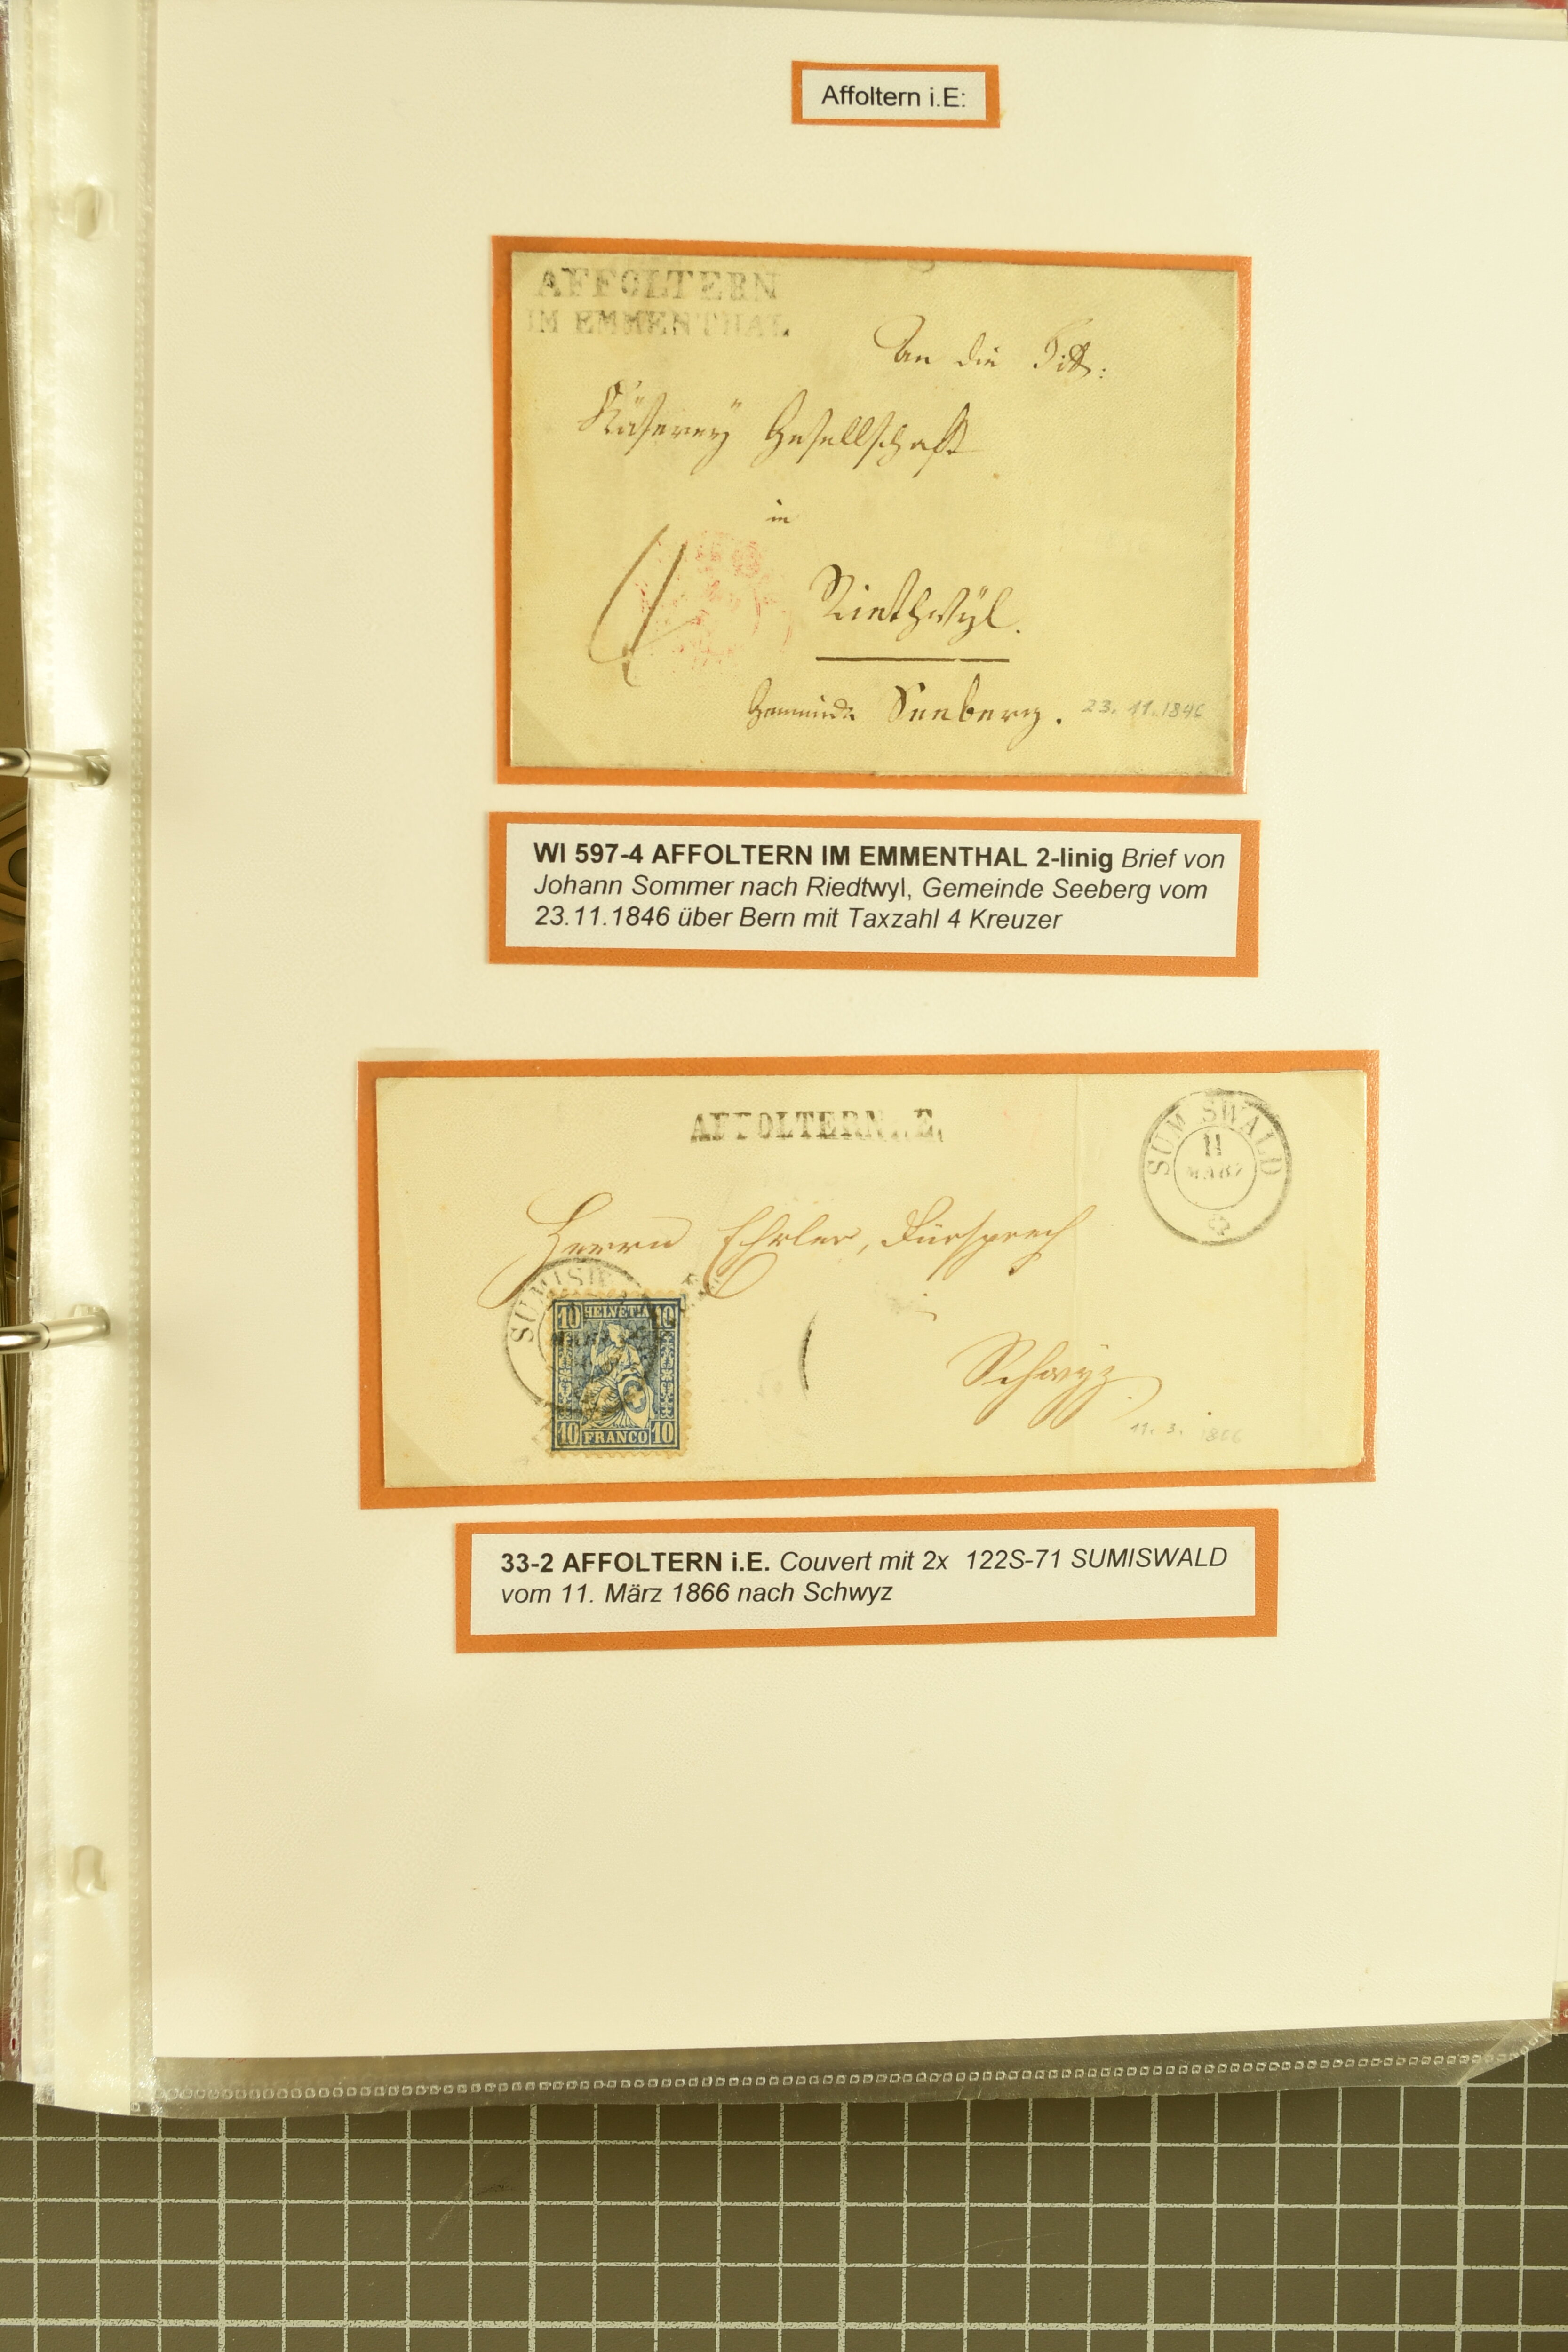 Affoltern i.E:
AFFOLTERN
IM EMMENTHAL
An die Titt:
Käserey Gesellschaft
in
Riethwÿl.
Gemeinde Seeberg.
23. 11. 1846
WI 597-4 AFFOLTERN IM EMMENTHAL 2-linig Brief von
Johann Sommer nach Riedtwyl, Gemeinde Seeberg vom
23.11.1846 über Bern mit Taxzahl 4 Kreuzer
AFFOLTERN i. E.
SUMISWALD
11
MÄRZ
Herrn Ehrler, Fürsprech
in
Schwyz
11. 3. 1866
SUMISW
10 HELVETIA 10
10 FRANCO 10
33-2 AFFOLTERN i.E. Couvert mit 2x 122S-71 SUMISWALD
vom 11. März 1866 nach Schwyz